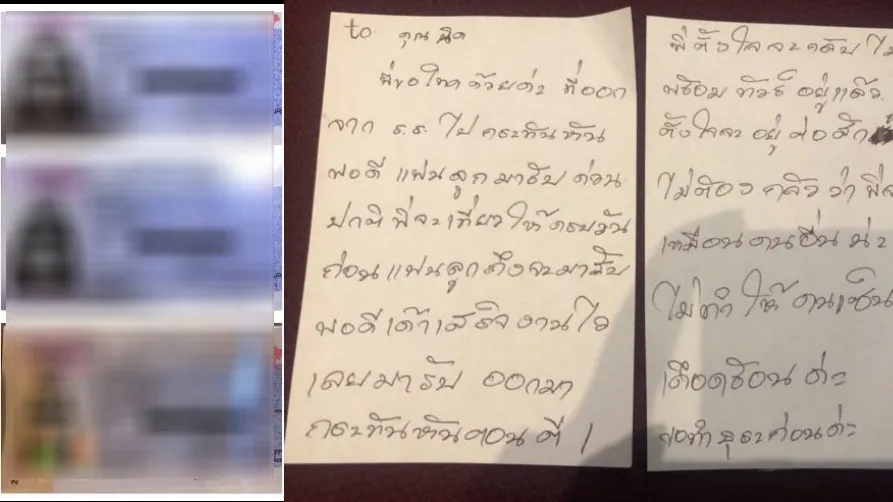 to คุณ นิด
พี่ขอโทษด้วยค่ะ ที่ออก
จาก ร.ร. ไป กระทันหัน
พอดี แฟนลูกมารับ ก่อน
ปกติ พี่จะเที่ยวให้ครบวัน
ก่อน แฟนลูกถึงจะมารับ
พอดีเค้าเสร็จงานไว
เลยมารับ ออกมา
กระทันหันตอนตี 1
พี่ตั้งใจจะกลับไป
พร้อม ทัวร์ อยู่แล้ว
ตั้งใจจะอยู่ต่อสัก
ไม่ต้อง กลัว ว่า พี่จ
เหมือนคนอื่น น่ะ
ไม่ทำ ให้ คนเซ็น
เดือดร้อน ค่ะ
ขอทำธุระก่อนค่ะ
2